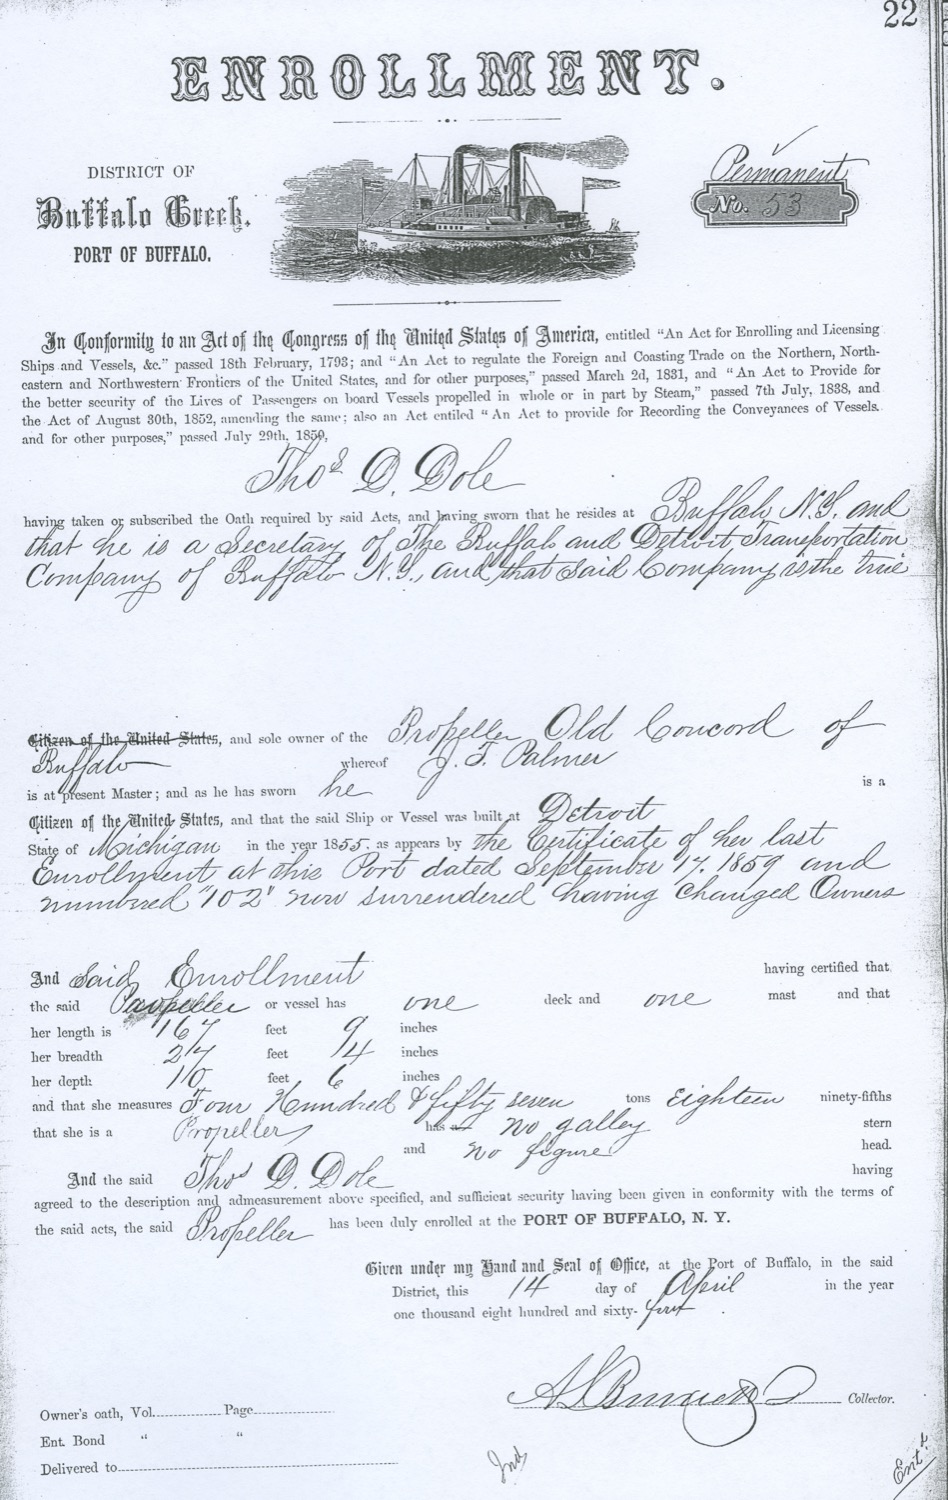 22
ENROLLMENT.
DISTRICT OF
Buffalo Creek,
PORT OF BUFFALO.
Permanent
No. 53
In Conformity to an Act of the Congress of the United States of America, entitled "An Act for Enrolling and Licensing
Ships and Vessels, &c." passed 18th February, 1793; and "An Act to regulate the Foreign and Coasting Trade on the Northern, North-
eastern and Northwestern Frontiers of the United States, and for other purposes," passed March 2d, 1831, and "An Act to Provide for
the better security of the Lives of Passengers on board Vessels propelled in whole or in part by Steam," passed 7th July, 1838, and
the Act of August 30th, 1852, amending the same; also an Act entiled "An Act to provide for Recording the Conveyances of Vessels.
and for other purposes," passed July 29th, 1850,
Thos D. Dole
having taken or subscribed the Oath required by said Acts, and having sworn that he resides at Buffalo N.Y. and
that he is a Secretary of The Buffalo and Detroit Transportation
Company of Buffalo N.Y., and that said Company is the true
Citizen of the United States, and sole owner of the Propeller Old Concord of
Buffalo whereof J. T. Palmer
is at present Master; and as he has sworn he is a
Citizen of the United States, and that the said Ship or Vessel was built at Detroit
State of Michigan in the year 1855. as appears by the Certificate of her last
Enrollment at this Port dated September 17. 1859 and
numbered "102" now surrendered having changed Owners
And said Enrollment having certified that
the said Propeller or vessel has one deck and one mast and that
her length is 167 feet 9 inches
her breadth 27 feet 4 inches
her depth 10 feet 6 inches
and that she measures Four Hundred & fifty seven tons Eighteen ninety-fifths
that she is a Propeller has no galley stern
and no figure head.
And the said Thos D. Dole having
agreed to the description and admeasurement above specified, and sufficient security having been given in conformity with the terms of
the said acts, the said Propeller has been duly enrolled at the PORT OF BUFFALO, N. Y.
Given under my Hand and Seal of Office, at the Port of Buffalo, in the said
District, this 14 day of April in the year
one thousand eight hundred and sixty-
Collector.
Owner's oath, Vol. Page
Ent. Bond " "
Delivered to
Ent.d